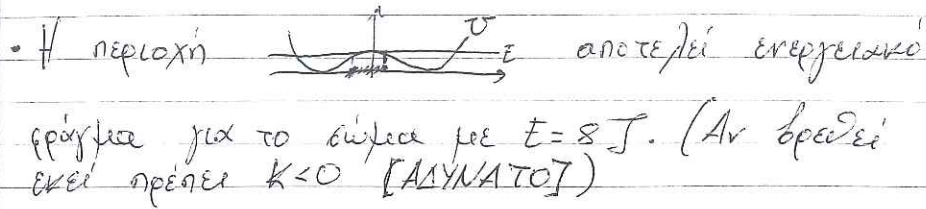 • Η περιοχή U E αποτελεί ενεργειακό
φράγμα για το σώμα με E = 8 J. (Αν βρεθεί
εκεί πρέπει K<0 [ΑΔΥΝΑΤΟ])